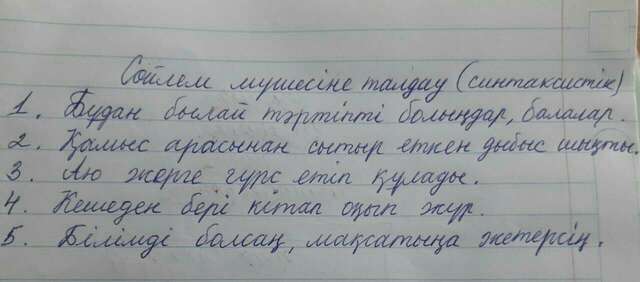 Сөйлем мүшесіне талдау (синтаксистік)
1. Бұдан былай тәртіпті болыңдар, балалар.
2. Қамыс арасынан сытыр еткен дыбыс шықты.
3. Аю жерге гүрс етіп құлады.
4. Кешеден бері кітап оқып жүр.
5. Білімді болсаң, мақсатыңа жетерсің.